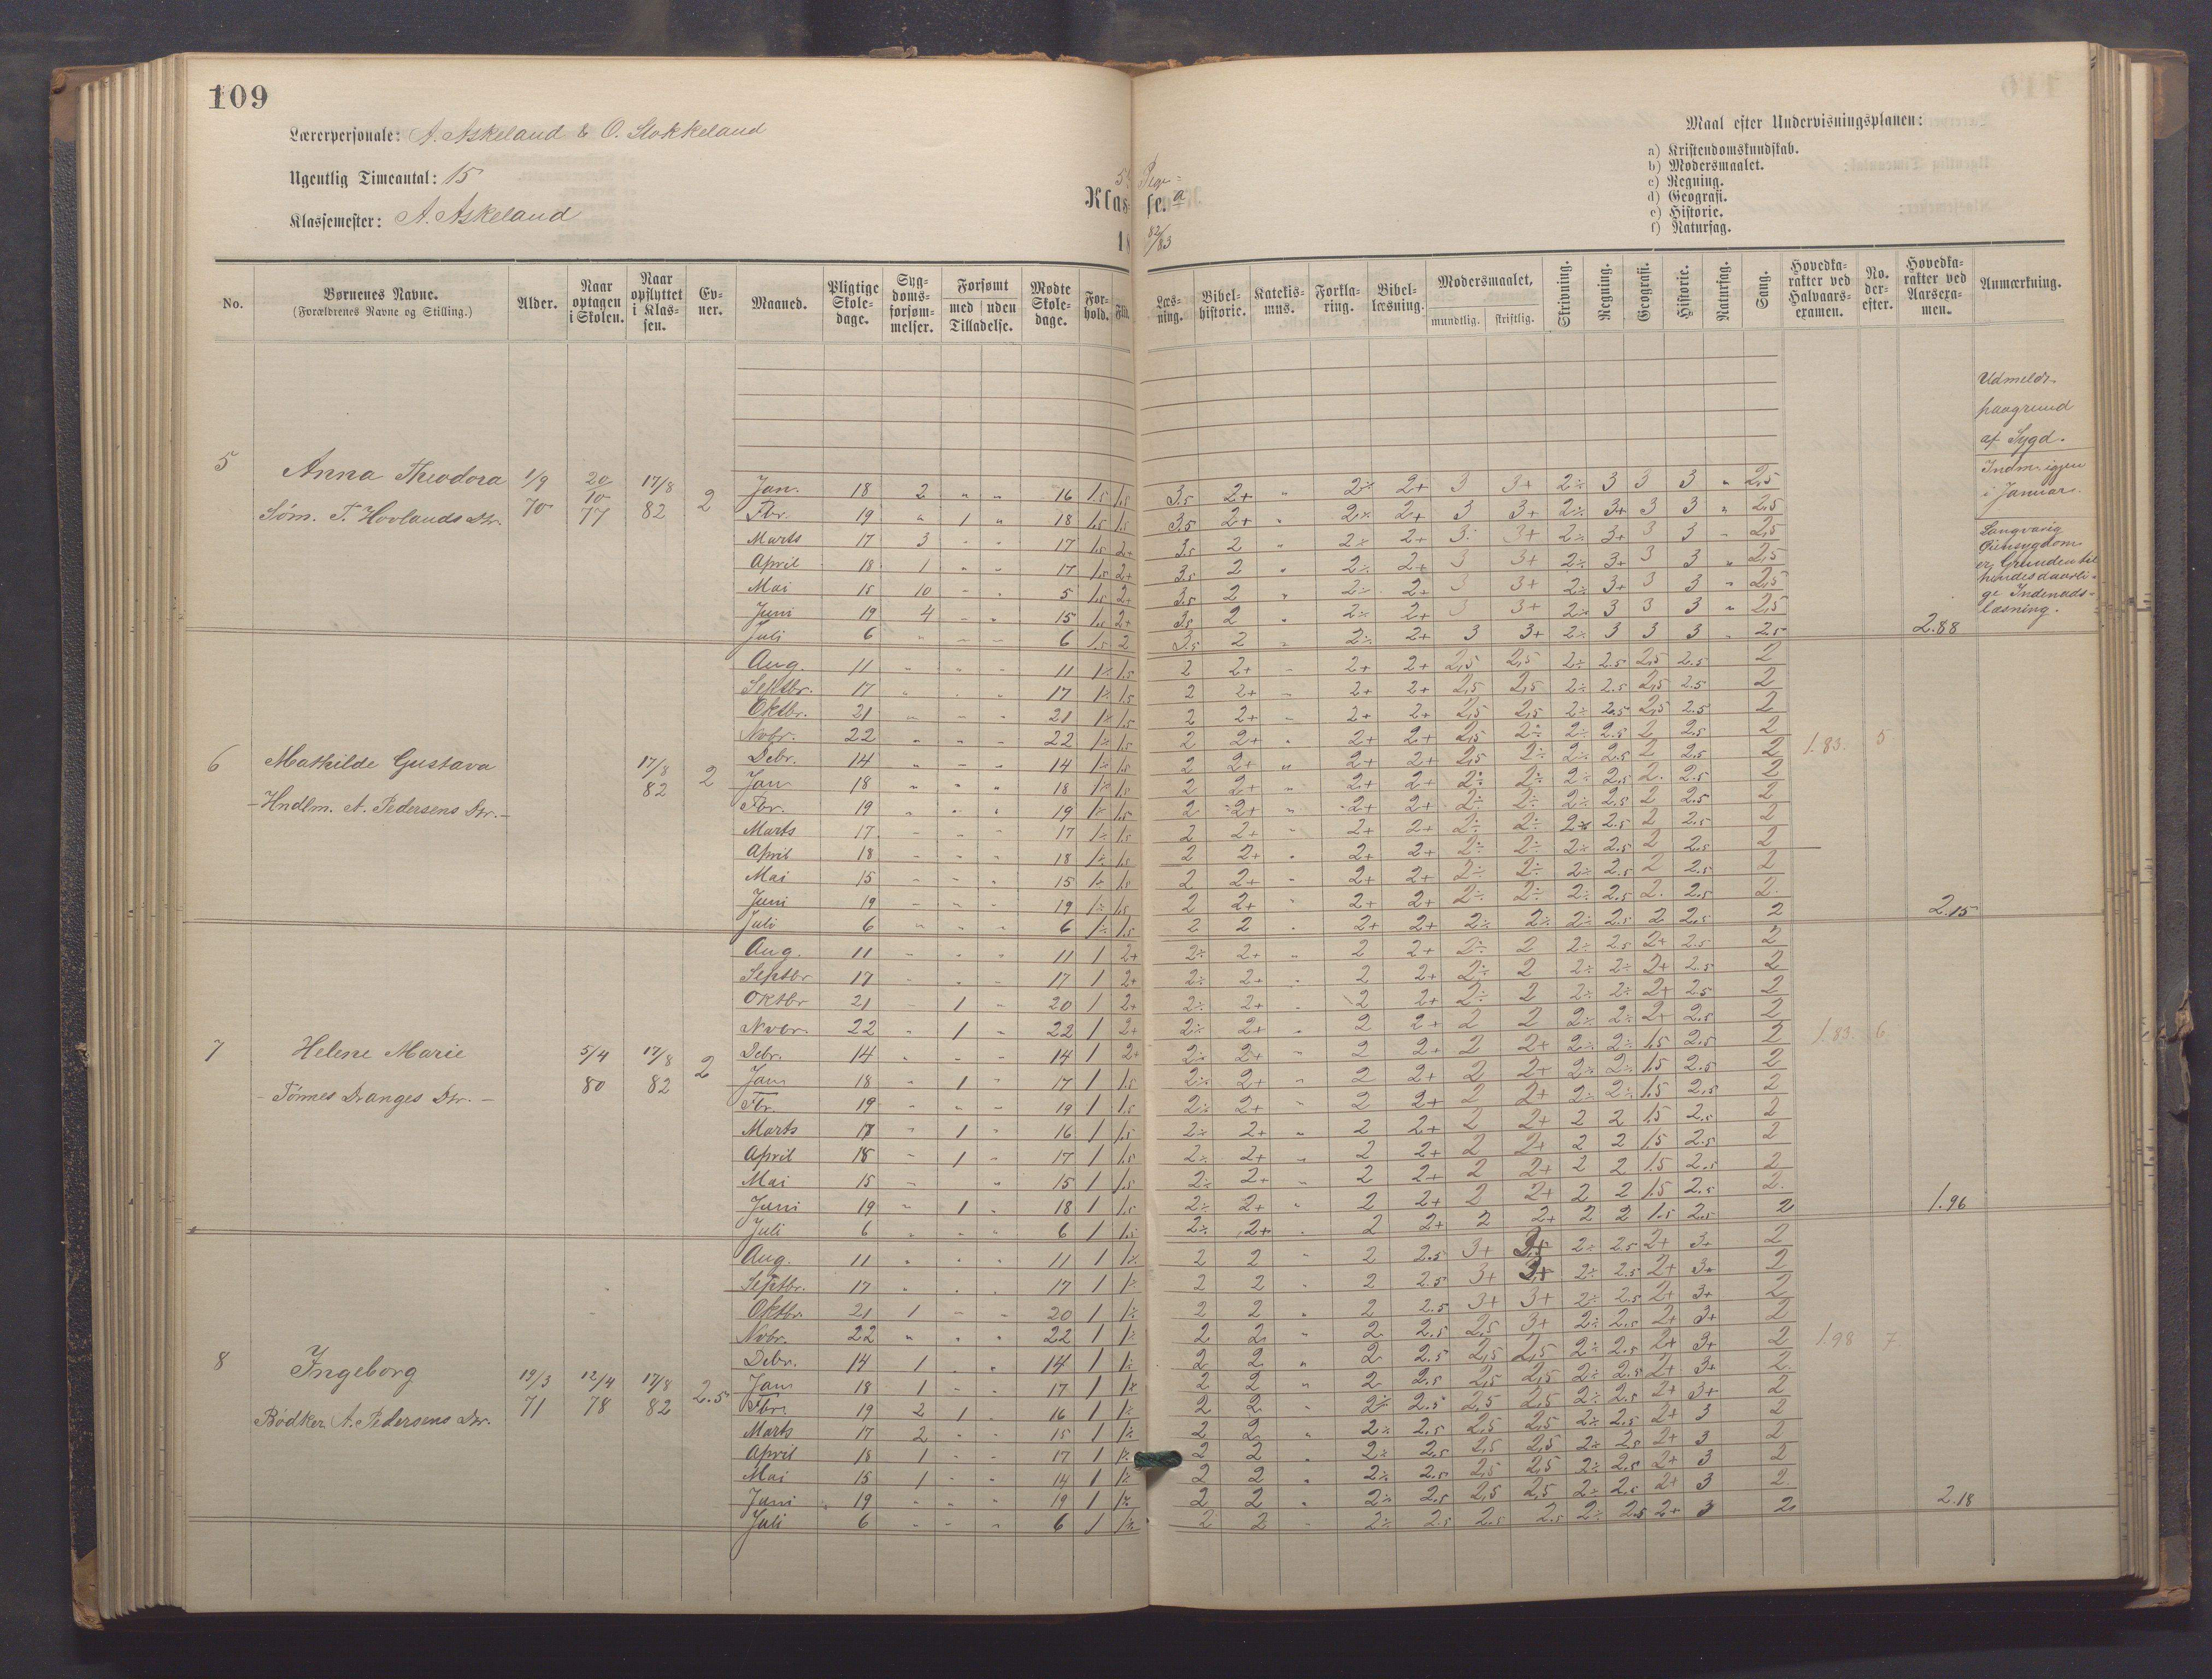 109
Lærerpersonale: A. Askeland & O. Stokkeland
Ugentlig Timeantal: 15
Klassemester: A. Askeland
Klasse. a
18 82/83
Maal efter Undervisningsplanen:
a) Kristendomskundskab.
b) Modersmaalet.
c) Regning.
d) Geografi.
e) Historie.
f) Naturfag.
No. | Børnenes Navne. (Forældrenes Navne og Stilling.) | Alder. | Naar optagen i Skolen. | Naar opflyttet i Klassen. | Evner. | Maaned. | Pligtige Skoledage. | Sygdomsforsømmelser. | Forsømt med / uden Tilladelse. | Mødte Skoledage. | Forhold. | Flid. | Læsning. | Bibelhistorie. | Katekismus. | Forklaring. | Bibellæsning. | Modersmaalet, mundtlig. | skriftlig. | Skrivning. | Regning. | Geografi. | Historie. | Naturfag. | Sang. | Hovedkarakter ved Halvaarsexamen. | No. derefter. | Hovedkarakter ved Aarsexamen. | Anmærkning.
5 Anna Theodora 1/9 70 20/10 77 17/8 82 2
Søm. T. Hovlands Dtr.
Jan. 18 2 " " 16 1.5 1.5 3.5 2+ " 2÷ 2+ 3 3+ 2÷ 3 3 3 " 2,5
Fbr. 19 " 1 " 18 1.5 1.5 3.5 2+ " 2÷ 2+ 3 3+ 2÷ 3+ 3 3 " 2,5
Marts 17 3 " " 17 1.5 2+ 3.5 2 " 2÷ 2+ 3 3+ 2÷ 3+ 3 3 " 2,5
April 18 1 " " 17 1.5 2+ 3.5 2 " 2÷ 2+ 3 3+ 2÷ 3+ 3 3 " 2,5
Mai 15 10 " " 5 1.5 2+ 3.5 2 " 2÷ 2+ 3 3+ 2÷ 3+ 3 3 " 2,5
Juni 19 4 " " 15 1.5 2+ 3.5 2 " 2÷ 2+ 3 3+ 2÷ 3 3 3 " 2,5
Juli 6 " " " 6 1.5 2 3.5 2 " 2÷ 2+ 3 3+ 2÷ 3 3 3 " 2.5 2.88
Udmeldt
paagrund
af Sygd.
Indm. igjen
i Januar.
Langvarig
Øiensygdom
er Grunden til
hendes daarli-
ge Indenads-
læsning.
6 Mathilde Gustava 17/8 82 2
- Hndlm. A. Pedersens Dtr. -
Aug. 11 " " " 11 1÷ 1.5 2 2+ " 2+ 2+ 2,5 2,5 2÷ 2.5 2,5 2.5 2
Septbr. 17 " " " 17 1÷ 1.5 2 2+ " 2+ 2+ 2,5 2,5 2÷ 2.5 2,5 2.5 2
Oktbr. 21 " " " 21 1÷ 1.5 2 2+ " 2+ 2+ 2,5 2,5 2÷ 2.5 2,5 2.5 2
Nvbr. 22 " " " 22 1÷ 1.5 2 2+ " 2+ 2+ 2,5 2÷ 2÷ 2.5 2 2.5 2
Debr. 14 " " " 14 1÷ 1.5 2 2+ " 2+ 2+ 2,5 2÷ 2÷ 2.5 2 2.5 2 1.83. 5
Jan 18 " " " 18 1÷ 1.5 2 2+ " 2+ 2+ 2÷ 2÷ 2÷ 2.5 2. 2.5 2
Fbr. 19 " " " 19 1÷ 1.5 2 2+ " 2+ 2+ 2÷ 2÷ 2÷ 2.5 2 2.5 2
Marts 17 " " " 17 1÷ 1.5 2 2+ " 2+ 2+ 2÷ 2÷ 2÷ 2.5 2 2.5 2
April 18 " " " 18 1÷ 1.5 2 2+ " 2+ 2+ 2÷ 2÷ 2÷ 2.5 2 2.5 2
Mai 15 " " " 15 1÷ 1.5 2 2+ " 2+ 2+ 2÷ 2÷ 2÷ 2.5 2 2.5 2
Juni 19 " " " 19 1÷ 1.5 2 2+ " 2+ 2+ 2÷ 2÷ 2÷ 2.5 2. 2.5 2.
Juli 6 " " " 6 1÷ 1.5 2 2 " 2+ 2+ 2÷ 2÷ 2÷ 2.5 2 2.5 2 2.15
7 Helene Marie 5/4 80 17/8 82 2
- Tønnes Dranges Dtr. -
Aug. 11 " " " 11 1 2+ 2÷ 2+ " 2 2+ 2÷ 2 2÷ 2.5 2+ 2.5 2
Septbr 17 " " " 17 1 2+ 2÷ 2+ " 2 2+ 2÷ 2 2÷ 2÷ 2+ 2.5 2
Oktbr 21 " 1 " 20 1 2+ 2÷ 2+ " 2 2+ 2÷ 2 2÷ 2÷ 2+ 2.5 2
Nvbr. 22 " 1 " 22 1 2+ 2÷ 2+ " 2 2+ 2 2 2÷ 2÷ 2+ 2.5 2
Debr. 14 " " " 14 1 2+ 2÷ 2+ " 2 2+ 2 2+ 2÷ 2÷ 1.5 2.5 2 1.83. 6
Jan 18 " 1 " 17 1 1.5 2÷ 2+ " 2 2+ 2 2+ 2÷ 2÷ 1.5 2.5 2
Fbr. 19 " " " 19 1 1.5 2÷ 2+ " 2 2+ 2 2+ 2÷ 2÷ 1.5 2.5 2
Marts 17 " 1 " 16 1 1.5 2÷ 2+ " 2 2+ 2 2+ 2 2 1.5 2.5 2
April 18 " 1 " 17 1 1.5 2÷ 2+ " 2 2+ 2 2+ 2 2 1.5 2.5 2
Mai 15 " " 15 1 1.5 2÷ 2+ " 2 2+ 2 2+ 2 2 1.5 2.5 2
Juni 19 " 1 " 18 1 1.5 2÷ 2+ " 2 2+ 2 2+ 2 2 1.5 2.5 2.
Juli 6 " " " 6 1 1.5 2÷ 2+ " 2 2+ 2 2+ 2 2 1.5 2.5 2 1.96
8 Ingeborg 19/3 71 12/4 78 17/8 82 2.5
Bødker A. Pedersens Dtr.
Aug. 11 " " " 11 1 1÷ 2 2 " 2 2.5 3+ 3+ 2÷ 2.5 2+ 3+ 2
Septbr. 17 " " " 17 1 1÷ 2 2 " 2 2.5 3+ 3+ 2÷ 2.5 2+ 3+ 2
Oktbr 21 1 " " 20 1 1÷ 2 2 " 2 2.5 3+ 3+ 2÷ 2.5 2+ 3+ 2
Nvbr. 22 " " " 22 1 1÷ 2 2 " 2 2.5 2,5 3+ 2÷ 2.5 2+ 3+ 2
Debr. 14 1 " " 14 1 1÷ 2 2 " 2 2.5 2,5 2,5 2÷ 2.5 2+ 3+ 2 1.98 7
Jan 18 1 " " 17 1 1÷ 2 2 " 2 2.5 2,5 2,5 2÷ 2.5 2+ 3+ 2.
Fbr. 19 2 1 " 16 1 1÷ 2 2 " 2÷ 2.5 2,5 2,5 2÷ 2.5 2+ 3+ 2
Marts 17 2 " " 15 1 1÷ 2 2 " 2÷ 2.5 2,5 2,5 2÷ 2.5 2+ 3 2
April 18 1 " " 17 1 1÷ 2 2 " 2÷ 2.5 2,5 2,5 2÷ 2.5 2+ 3 2
Mai 15 1 " " 14 1 1÷ 2 2 " 2÷ 2.5 2,5 2,5 2÷ 2.5 2+ 3 2
Juni 19 " " " 19 1 1÷ 2 2 " 2÷ 2.5 2,5 2,5 2÷ 2.5 2+ 3 2.
Juli 6 " " " 6 1 1÷ 2 2 " 2÷ 2.5 2.5 2.5 2÷ 2.5 2+ 3 2 2.18